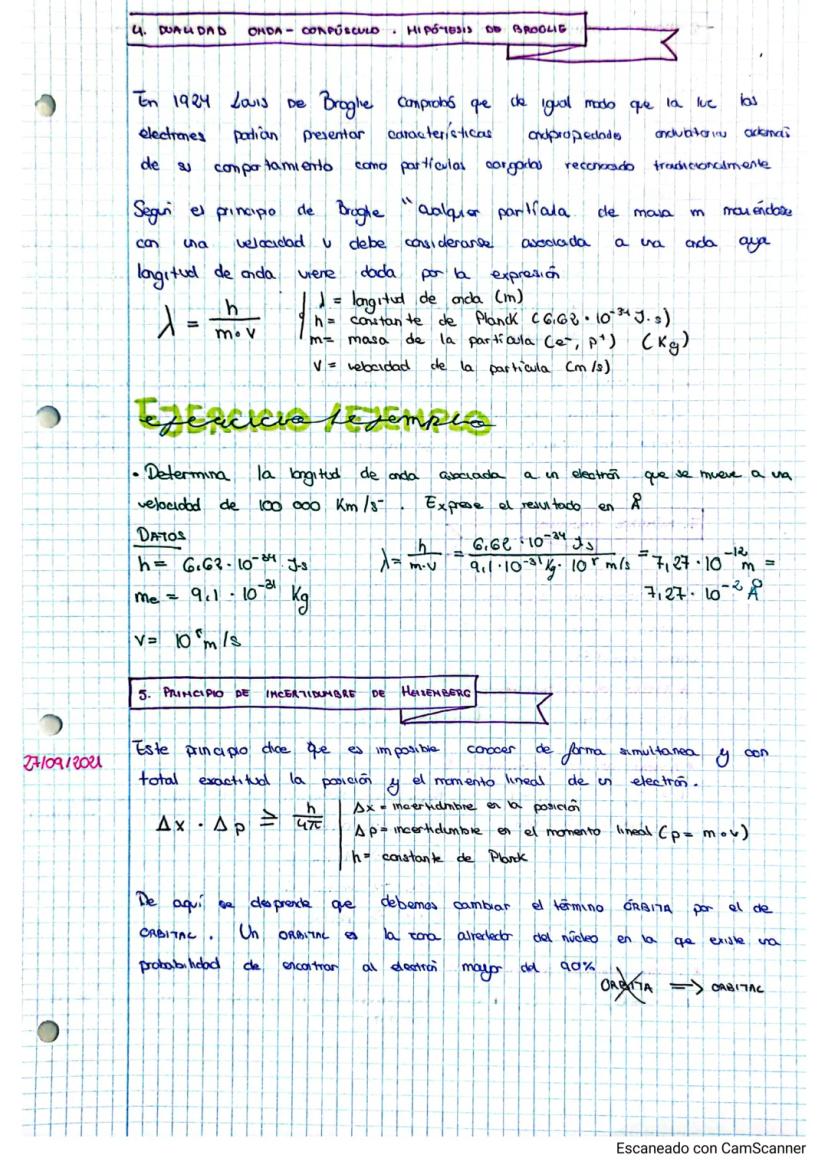 4. DUALIDAD ONDA-CORPÚSCULO. HIPÓTESIS DE BROGLIE
En 1924 Louis De Broglie comprobó que de igual modo que la luz los
electrones podían presentar características propiedades ondulatorias además
de su comportamiento como partículas cargadas reconocido tradicionalmente
Según el principio de Broglie "cualquier partícula de masa m moviéndose
con una velocidad v debe considerarse asociada a una onda cuya
longitud de onda viene dada por la expresión
λ = h / m·v
λ = longitud de onda (m)
h = constante de Planck (6,62·10⁻³⁴ J·s)
m = masa de la partícula (e⁻, p⁺) (Kg)
v = velocidad de la partícula (m/s)
EJERCICIO / EJEMPLO
ejercicio / ejemplo
· Determina la longitud de onda asociada a un electrón que se mueve a una
velocidad de 100 000 Km/s. Exprese el resultado en Å
DATOS
h = 6,62·10⁻³⁴ J·s
λ = h / m·v = 6,62·10⁻³⁴ J·s / 9,1·10⁻³¹ Kg · 10⁸ m/s = 7,27·10⁻¹² m =
me = 9,1·10⁻³¹ Kg
7,27·10⁻² Å
v = 10⁸ m/s
5. PRINCIPIO DE INCERTIDUMBRE DE HEISENBERG
27/09/2021
Este principio dice que es imposible conocer de forma simultanea y con
total exactitud la posición y el momento lineal de un electrón.
Δx · Δp ≥ h / 4π
Δx = incertidumbre en la posición
Δp = incertidumbre en el momento lineal (p = m·v)
h = constante de Planck
De aquí se desprende que debemos cambiar el término ÓRBITA por el de
ORBITAL. Un ORBITAL es la zona alrededor del núcleo en la que existe una
probabilidad de encontrar al electrón mayor del 90%
ORBITA ⇒ ORBITAL
Escaneado con CamScanner